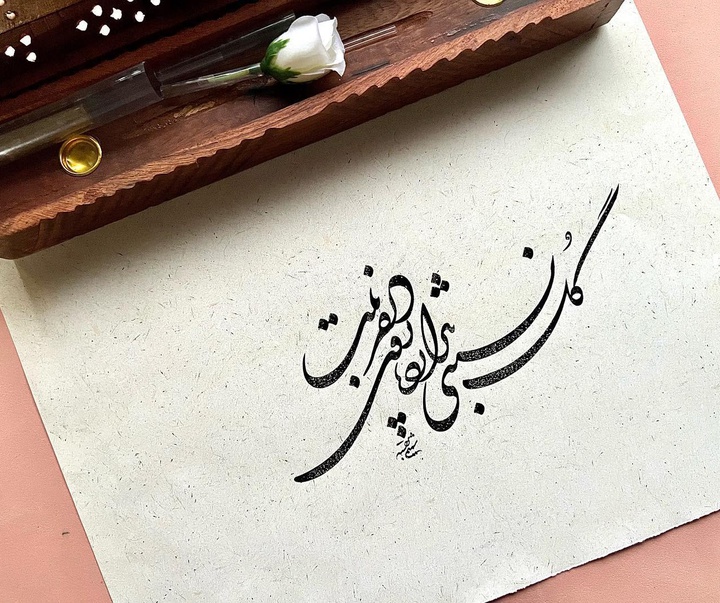 گُل نسبتی ندارد با روی دلفریبت